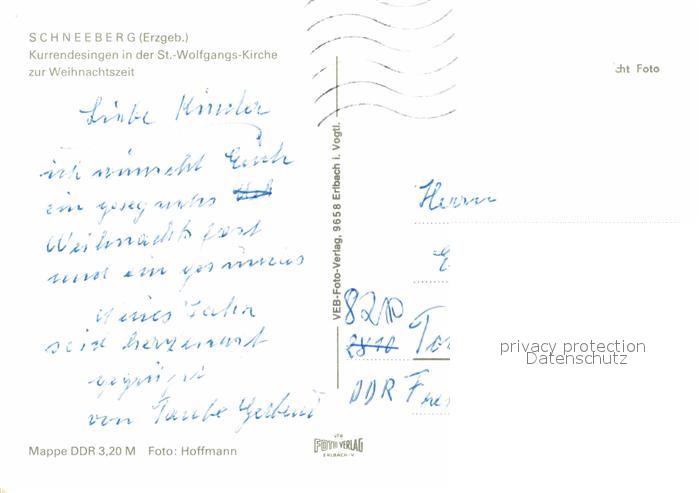 SCHNEEBERG (Erzgeb.)
Kurrendesingen in der St.-Wolfgangs-Kirche
zur Weihnachtszeit
Liebe Kinder
ich wünscht Euch
ein gesegnetes
Weihnachtsfest
und ein gesundes
neues Jahr
seid herzensart
gegrüßt
von Taube
Mappe DDR 3,20 M Foto: Hoffmann
VEB-Foto-Verlag, 9658 Erlbach i. Vogtl.
cht Foto
Herrn
8210
DDR
FOTO VERLAG
ERLBACH/V
privacy protection
Datenschutz